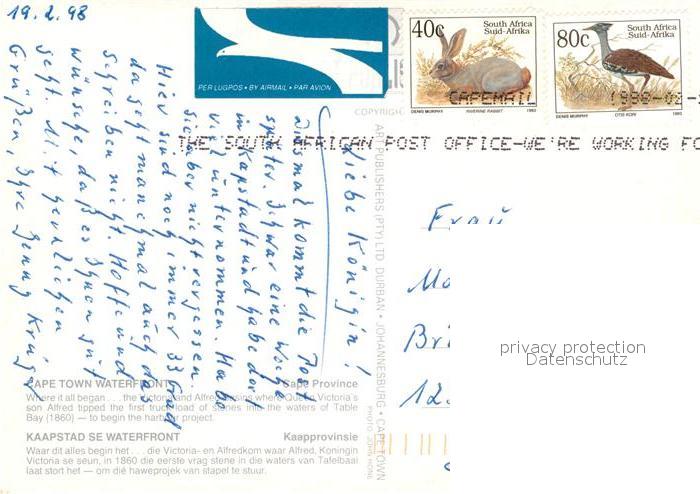 19.2.98
PER LUGPOS • BY AIRMAIL • PAR AVION
40c
South Africa
Suid-Afrika
DENIS MURPHY
RIVERINE RABBIT
1993
80c
South Africa
Suid-Afrika
DENIS MURPHY
OTIS KORI
1993
CAPEMAIL
THE SOUTH AFRICAN POST OFFICE-WE'RE WORKING FO
COPYRIGHT
ART PUBLISHERS (PTY) LTD. DURBAN • JOHANNESBURG • CAPE TOWN
PHOTO: JOHN HONE
Liebe Königin!
Diesmal kommt die Post
später. Ich war eine Woche
in Kapstadt und habe dort
viel unternommen. Habe
Sie aber nicht vergessen.
Hier sind noch immer 33 Grad
da geht manchmal auch das
Schreiben nicht. Hoffe und
wünsche, daß es Ihnen gut
geht. Mit herzlichen
Grüßen, Ihre Jenny Krüger
Frau
Bri
12.
privacy protection
Datenschutz
CAPE TOWN WATERFRONT Cape Province
Where it all began . . . the Victoria and Alfred Basins where Queen Victoria's
son Alfred tipped the first truck load of stones into the waters of Table
Bay (1860) — to begin the harbour project.
KAAPSTAD SE WATERFRONT Kaapprovinsie
Waar dit alles begin het . . . die Victoria- en Alfredkom waar Alfred, Koningin
Victoria se seun, in 1860 die eerste vrag stene in die waters van Tafelbaai
laat stort het — om dié haweprojek van stapel te stuur.